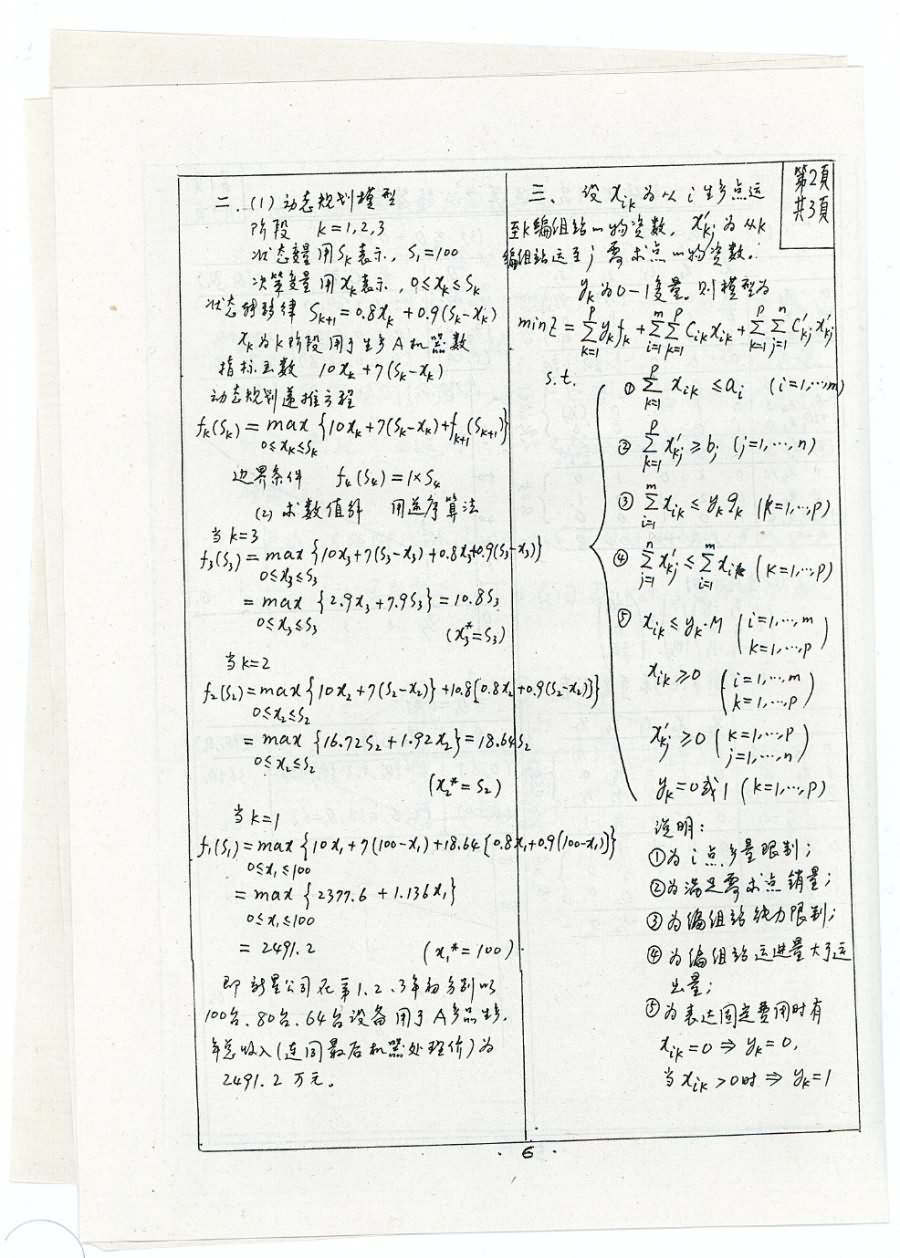 第2頁
共3頁
二. (1) 动态规划模型
阶段 k=1,2,3
状态变量用Sk表示, S1=100
决策变量用xk表示, 0≤xk≤Sk
状态转移律 Sk+1=0.8xk+0.9(Sk-xk)
xk为k阶段用于生产A机器数
指标函数 10xk+7(Sk-xk)
动态规划递推方程
fk(Sk)=max{10xk+7(Sk-xk)+fk+1(Sk+1)}
0≤xk≤Sk
边界条件 f4(S4)=1×S4
(2) 求数值解 用逆序算法
当k=3
f3(S3)=max{10x3+7(S3-x3)+0.8x3+0.9(S3-x3)}
0≤x3≤S3
=max{2.9x3+7.9S3}=10.8S3
0≤x3≤S3
(x3*=S3)
当k=2
f2(S2)=max{10x2+7(S2-x2)}+10.8[0.8x2+0.9(S2-x2)]}
0≤x2≤S2
=max{16.72S2+1.92x2}=18.64S2
0≤x2≤S2
(x2*=S2)
当k=1
f1(S1)=max{10x1+7(100-x1)+18.64[0.8x1+0.9(100-x1)]}
0≤x1≤100
=max{2377.6+1.136x1}
0≤x1≤100
=2491.2 (x1*=100)
即新星公司在第1、2、3年初分别以
100台、80台、64台设备用于A产品生产,
年总收入(连同最后机器处理价)为
2491.2万元。
三、设xik为从i生产点运
至k编组站的物资数, x'kj为从k
编组站运至j需求点的物资数。
yk为0-1变量。则模型为
minZ=∑(k=1→p)ykfk+∑(i=1→m)∑(k=1→p)Cikxik+∑(k=1→p)∑(j=1→n)C'kjx'kj
s.t. ①∑(k=1→p)xik≤ai (i=1,…,m)
②∑(k=1→p)x'kj≥bj (j=1,…,n)
③∑(i=1→m)xik≤ykqk (k=1,…,p)
④∑(j=1→n)x'kj≤∑(i=1→m)xik (k=1,…,p)
⑤xik≤yk·M (i=1,…,m
k=1,…,p)
xik≥0 (i=1,…,m
k=1,…,p)
x'kj≥0 (k=1,…,p
j=1,…,n)
yk=0或1 (k=1,…,p)
说明:
①为i点产量限制;
②为满足需求点销量;
③为编组站能力限制;
④为编组站运进量大于运
出量;
⑤为表达固定费用时有
xik=0⇒yk=0,
当xik>0时⇒yk=1
·6·